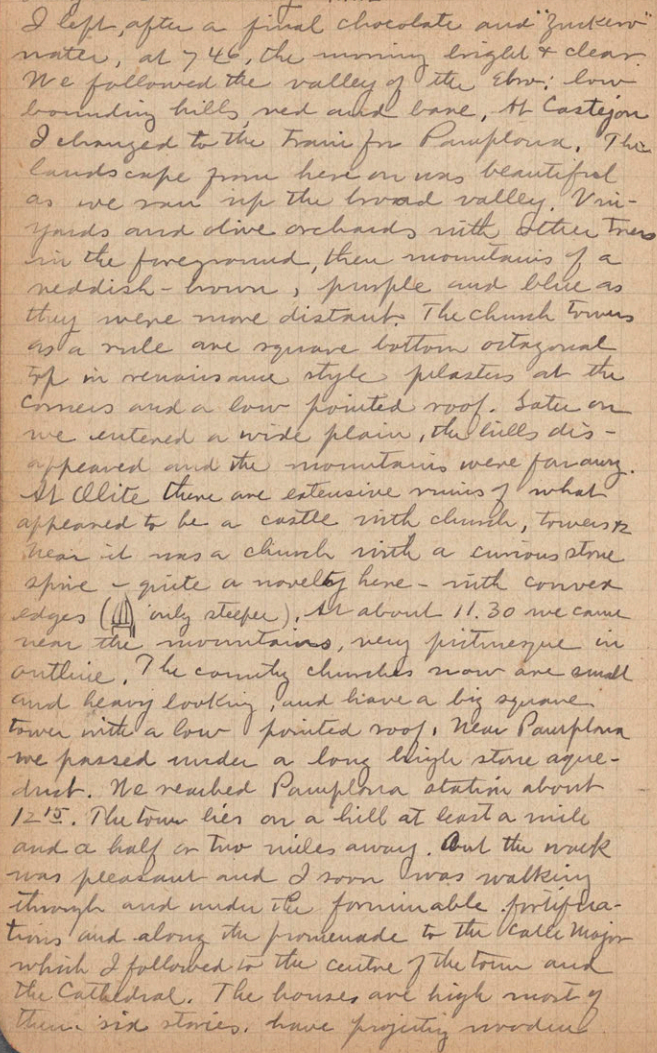 I left, after a final chocolate and "Zuckero"
water, at 7 46, the morning bright & clear.
We followed the valley of the Ebro; low
bounding hills, red and bare. At Castejon
I changed to the train for Pamplona. The
landscape from here on was beautiful
as we ran up the broad valley. Vin-
yards and olive orchards with other trees
in the foreground, then mountains of a
reddish-brown, purple and blue as
they were more distant. The church towers
as a rule are square bottom octagonal
top in renaissance style pilasters at the
corners and a low pointed roof. Later on
we entered a wide plain, the hills dis-
appeared and the mountains were far away.
At Olite there are extensive ruins of what
appeared to be a castle with church, towers &
Near it was a church with a curious stone
spire - quite a novelty here - with convex
edges ( only steeper). At about 11.30 we came
near the mountains, very picturesque in
outline. The country churches now are small
and heavy looking, and have a big square
tower with a low pointed roof. Near Pamplona
we passed under a long high stone aque-
duct. We reached Pamplona station about
12 15. The town lies on a hill at least a mile
and a half or two miles away. But the walk
was pleasant and I soon was walking
through and under the forminable fortifica-
tions and along the promenade to the Calle Major
which I followed to the centre of the town and
the Cathedral. The houses are high most of
them six stories. have projecting wooden